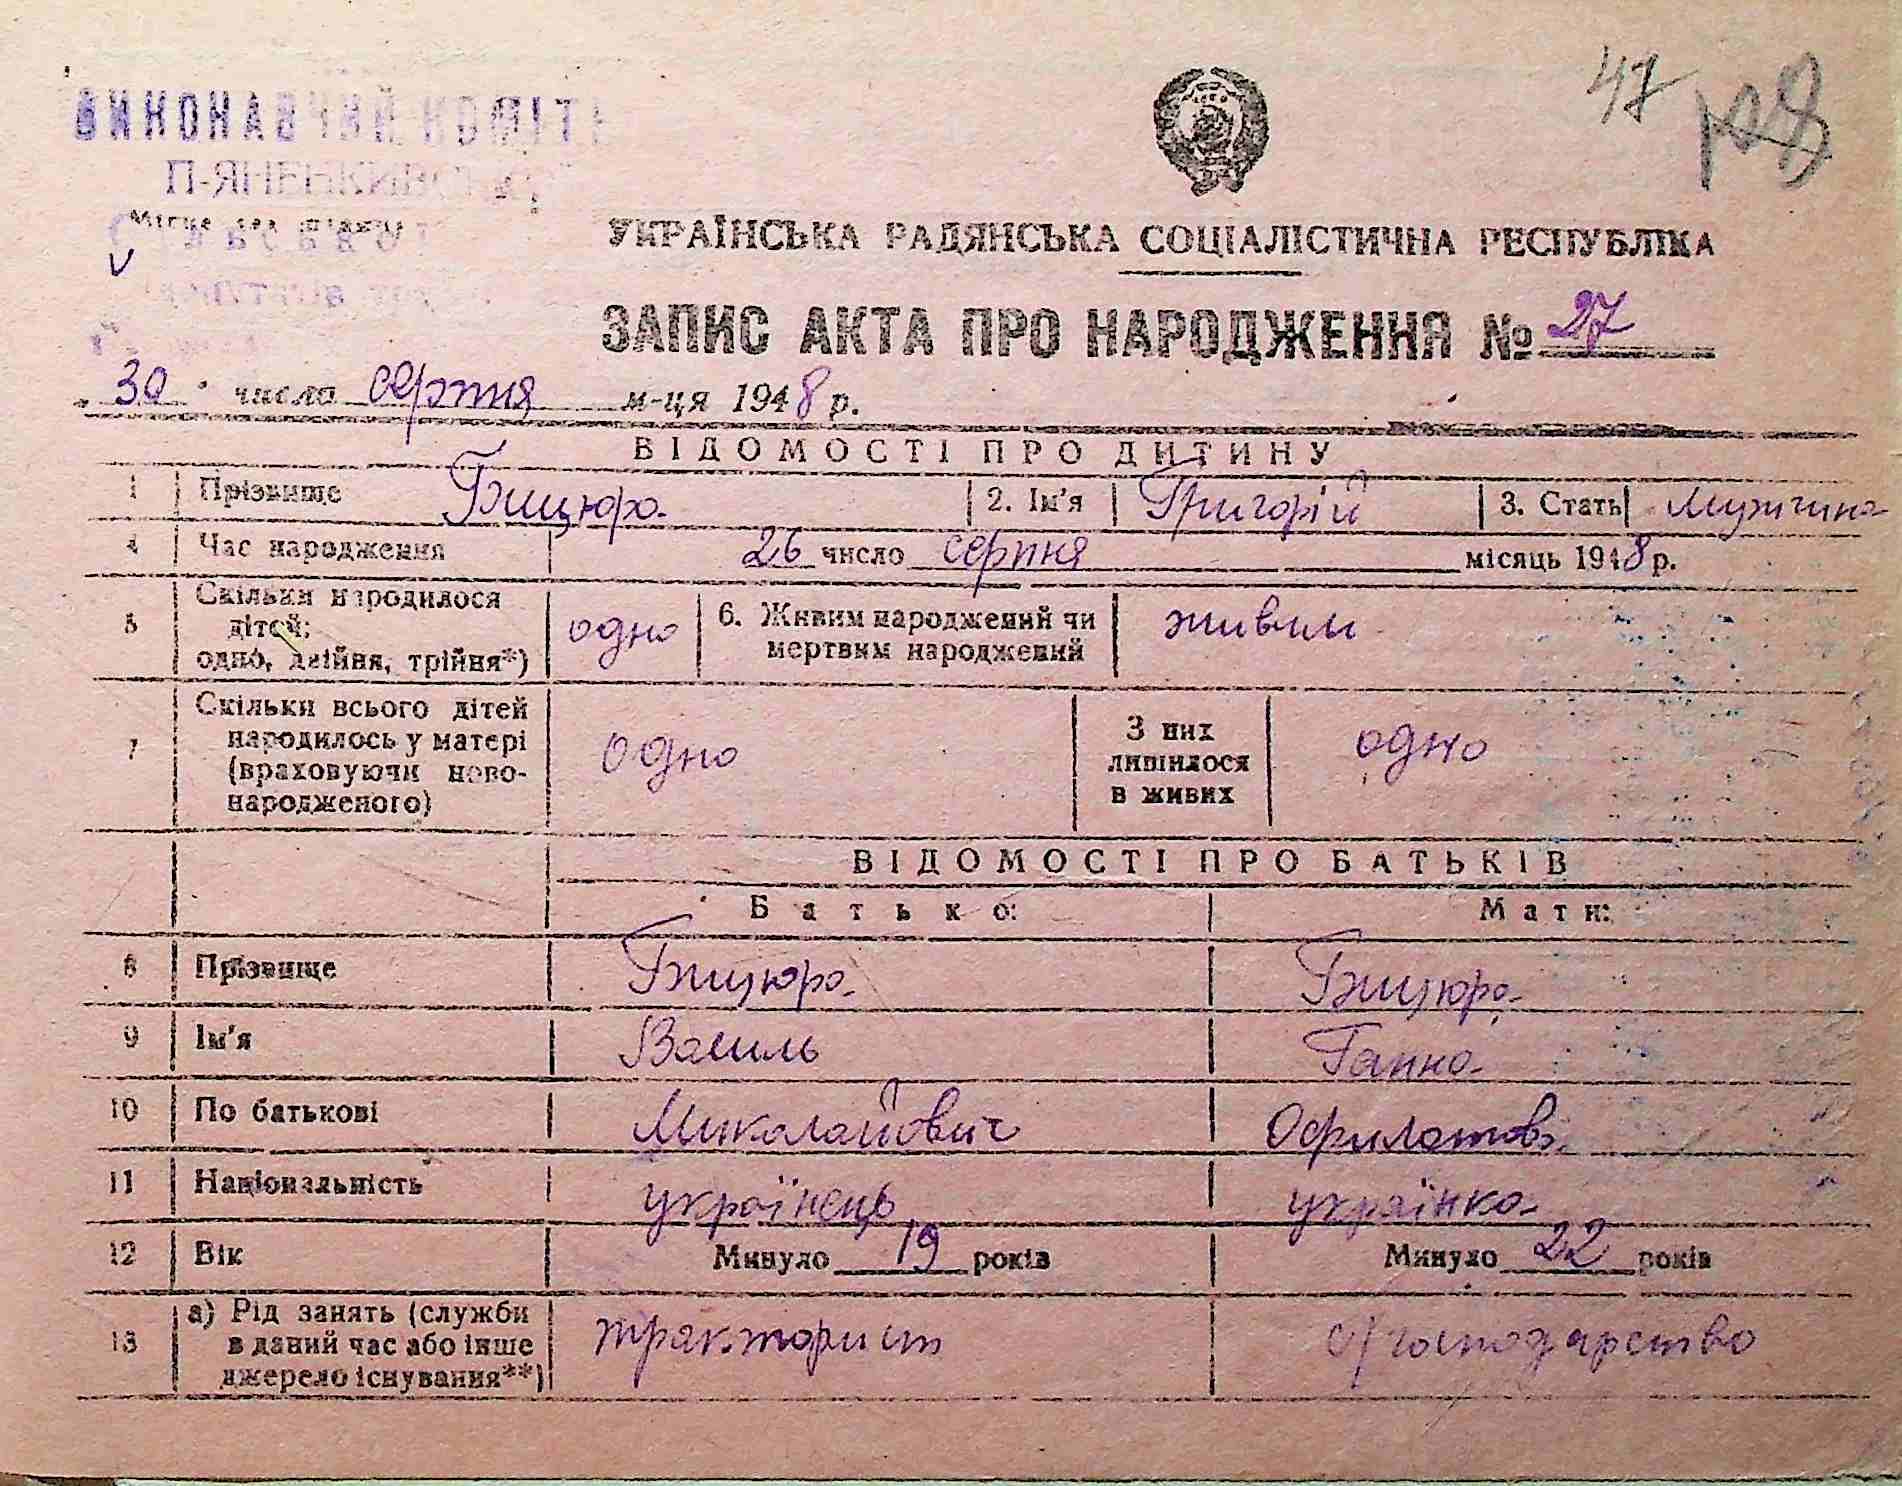 47
ВИКОНАВЧИЙ КОМІТЕТ
Місце для штампу
УКРАЇНСЬКА РАДЯНСЬКА СОЦІАЛІСТИЧНА РЕСПУБЛІКА
ЗАПИС АКТА ПРО НАРОДЖЕННЯ № 27
30 число серпня м-ця 1948 р.
ВІДОМОСТІ ПРО ДИТИНУ
1 Прізвище Бицюра 2. Ім'я Григорій 3. Стать мужчина
4 Час народження 26 число серпня місяць 1948 р.
5 Скільки народилося
дітей:
одно, двійня, трійня*) одно 6. Живим народжений чи
мертвим народжений живим
7 Скільки всього дітей
народилось у матері
(враховуючи ново-
народженого) одно З них
лишилося
в живих одно
ВІДОМОСТІ ПРО БАТЬКІВ
Батько: Мати:
8 Прізвище Бицюра Бицюра
9 Ім'я Василь Ганна
10 По батькові Миколайович
11 Національність українець українка
12 Вік Минуло 19 років Минуло 22 років
13 а) Рід занять (служби
в даний час або інше
джерело існування**) тракторист с/господарство